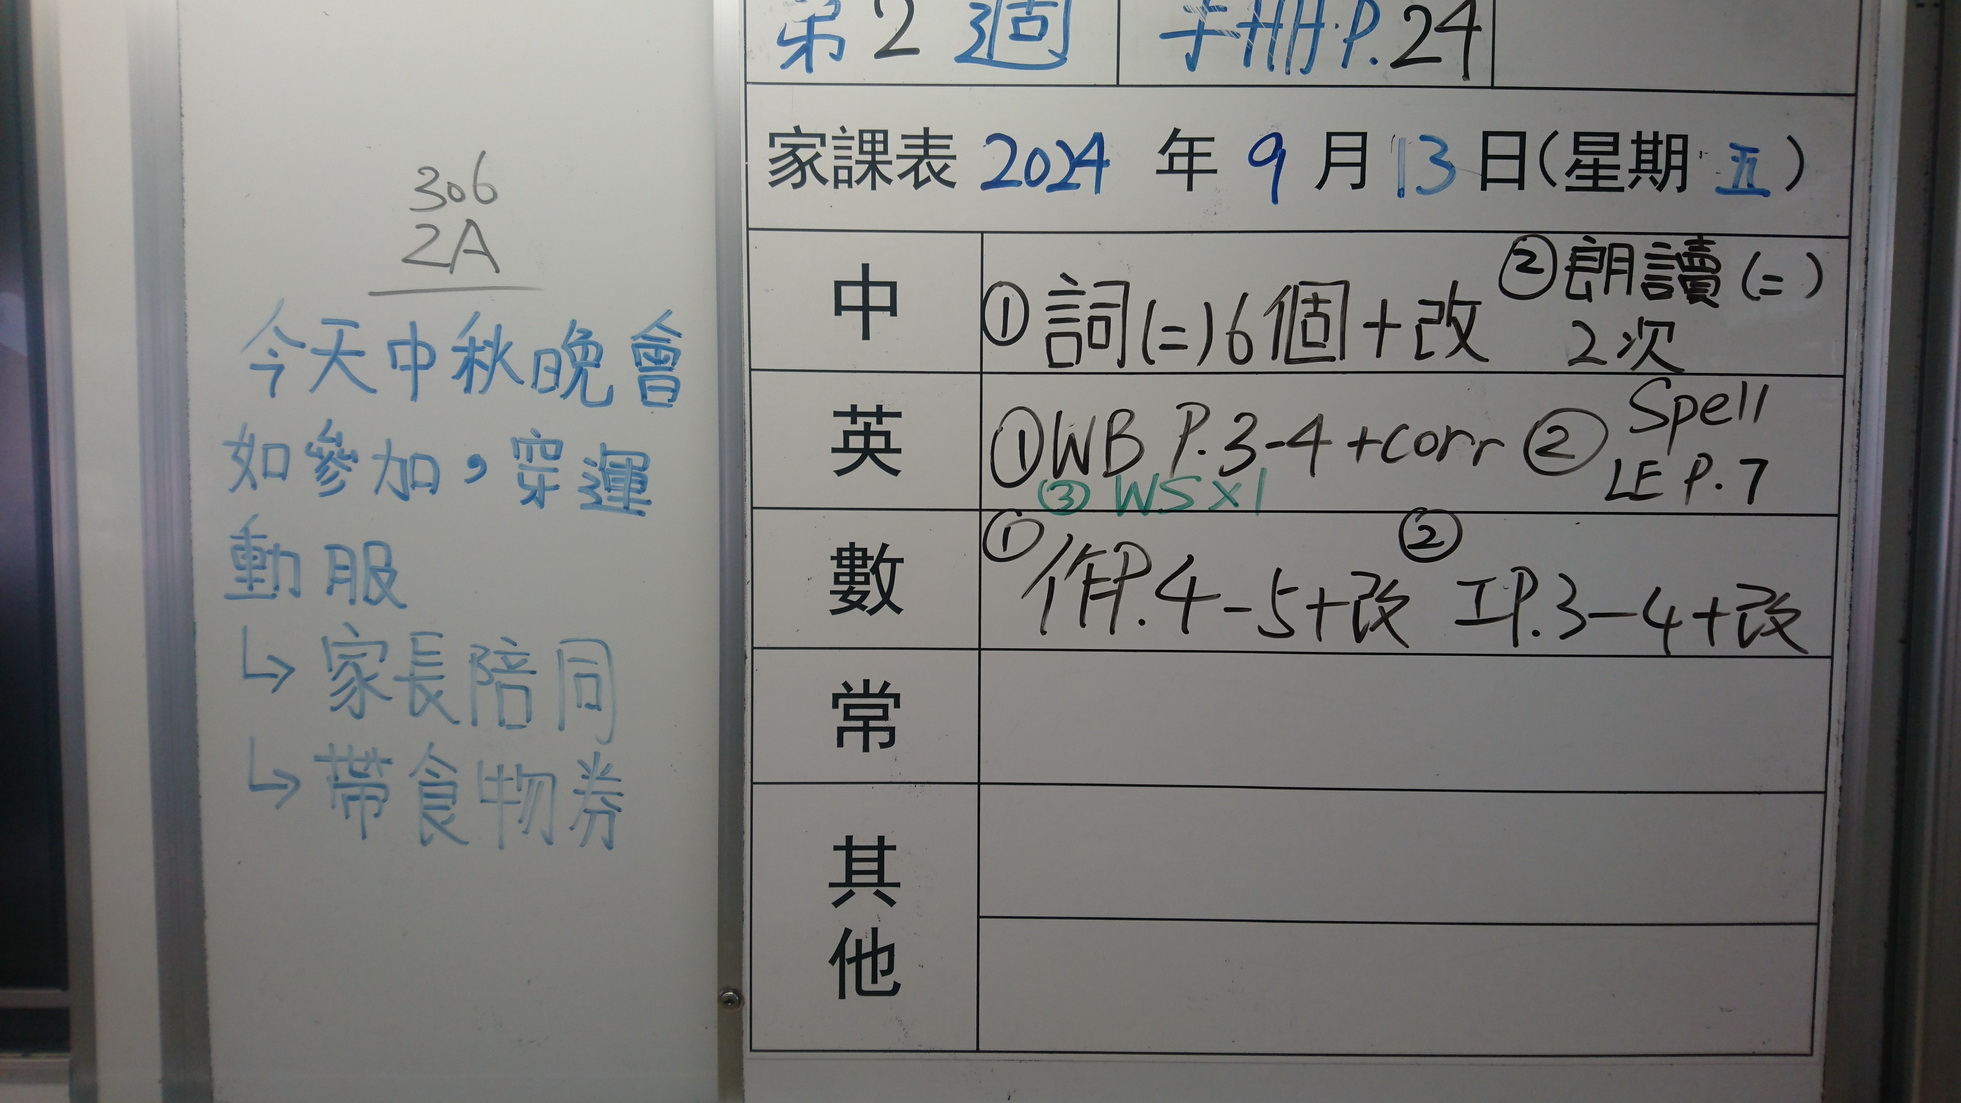 第2週 手冊P.24
家課表 2024 年 9 月 13 日(星期 五)
306
2A
今天中秋晚會
如參加，穿運
動服
↳家長陪同
↳帶食物券
中 ①詞(二)6個+改 ②朗讀(二)
2次
英 ①WB P.3-4+corr ② Spell
LE P.7
③ WS×1
數 ①作P.4-5+改 ②工P.3-4+改
常
其
他